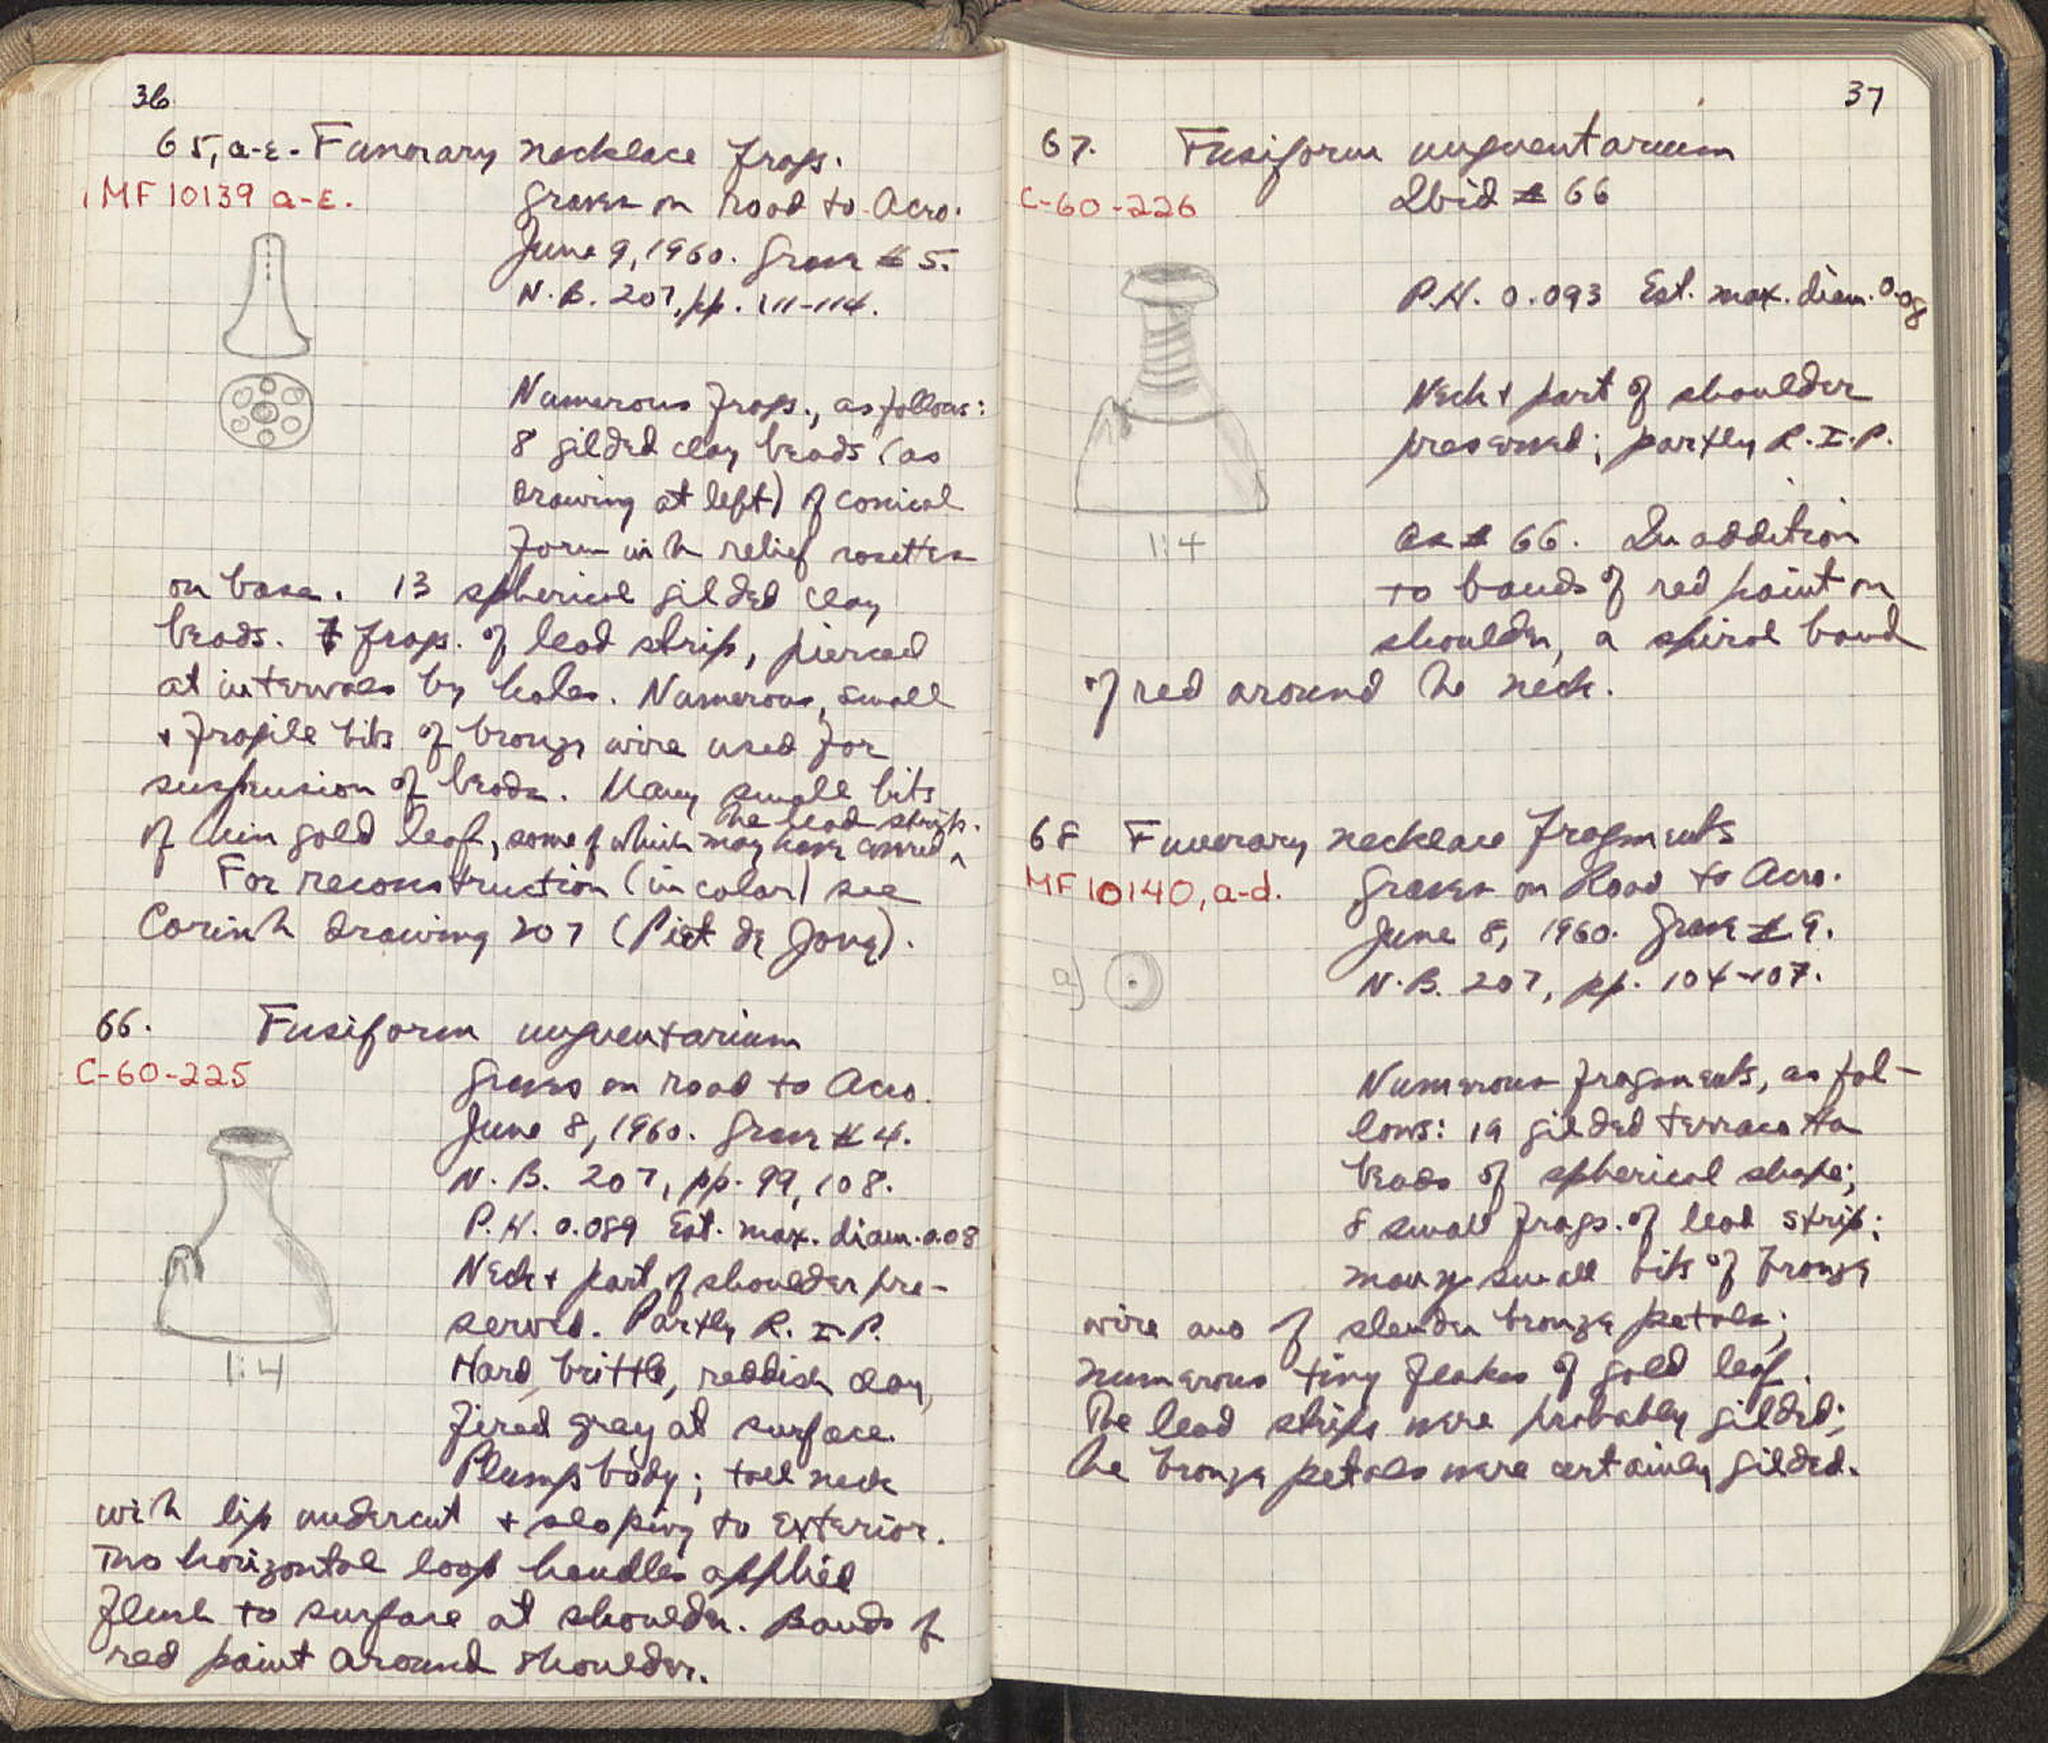 36
65, a-ε. Funerary necklace frags.
MF 10139 a-ε.
Graves on Road to Acro.
June 9, 1960. Grave # 5.
N.B. 207, pp. 111-114.
Numerous frags., as follows:
8 gilded clay beads (as
drawing at left) of conical
form with relief rosettes
on base. 13 spherical gilded clay
beads. 7 frags. of lead strip, pierced
at intervals by holes. Numerous, small
+ fragile bits of bronze wire used for
suspension of beads. Many small bits
of thin gold leaf, some of which may have covered ^ the lead strips.
For reconstruction (in color) see
Corinth drawing 207 (Piet de Jong).
66. Fusiform unguentarium
C-60-225
Graves on road to Acro.
June 8, 1960. Grave # 4.
N.B. 207, pp. 99, 108.
P.H. 0.089 Est. max. diam. 0.08
Neck + part of shoulder pre-
served. Partly R.I.P.
Hard, brittle, reddish clay,
fired gray at surface.
Plump body; tall neck
1:4
with lip undercut + sloping to exterior.
Two horizontal loop handles applied
flush to surface at shoulder. Bands of
red paint around shoulder.
37
67. Fusiform unguentarium
C-60-226
Ibid # 66
P.H. 0.093 Est. max. diam. 0.08
Neck + part of shoulder
preserved; partly R.I.P.
1:4
As # 66. In addition
to bands of red paint on
shoulder, a spiral band
of red around the neck.
68 Funerary necklace fragments
MF 10140, a-d.
Graves on Road to Acro.
June 8, 1960. Grave # 9.
N.B. 207, pp. 104-107.
a)
Numerous fragments, as fol-
lows: 19 gilded terracotta
beads of spherical shape;
8 small frags. of lead strip;
many small bits of bronze
wire and of slender bronze petals;
numerous tiny flakes of gold leaf.
The lead strips were probably gilded;
the bronze petals were certainly gilded.